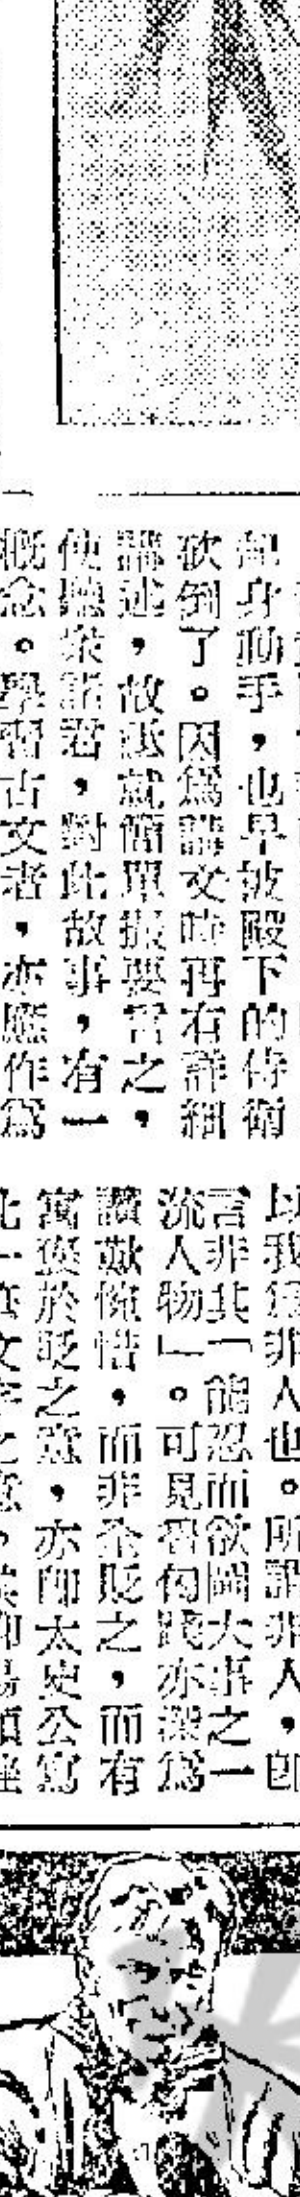 起身動手，也早被殿下的侍衛
砍倒了。因為講文時再有詳細
講述，故祇就簡單撮要言之，
使聽衆諸君，對此故事，有一
概念。學習古文者，亦應作為
以我為非人也。所謂非人，即
言非其「能忍而欲圖大事之一
流人物」。可見習句踐亦深為
讚歎惋惜，而非全貶之，而有
寓褒於貶之意，亦即太史公寫